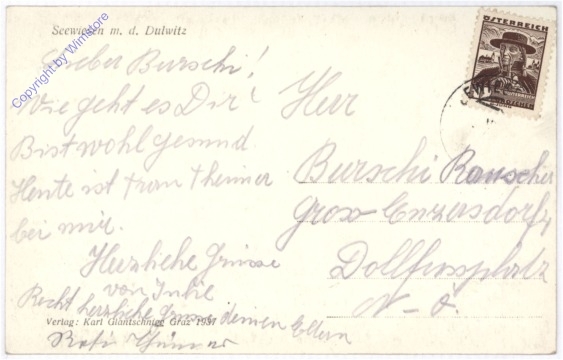 Seewiesen m. d. Dulwitz
Lieber Burschi!
Wie geht es Dir?
Bist wohl gesund.
Heute ist Frau Theimer
bei mir.
Herzliche Grüsse
von
Recht herzliche Grüsse deinen Eltern
Verlag: Karl Glantschnigg Graz 1937
ÖSTERREICH
Herr
Burschi Rauscher
Gross Enzersdorf
Dollfussplatz
N-Ö.
Copyright by Winstore